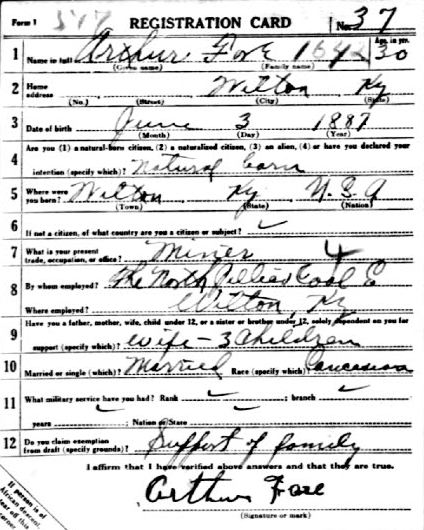 Form 1 517 REGISTRATION CARD No. 37
1 Name in full Arthur Fore 1642 Age, in yrs. 30
(Given name) (Family name)
2 Home address Wilton Ky
(No.) (Street) (City) (State)
3 Date of birth June 3 1887
(Month) (Day) (Year)
4 Are you (1) a natural-born citizen, (2) a naturalized citizen, (3) an alien, (4) or have you declared your
intention (specify which)? Natural born
5 Where were you born? Wilton Ky U.S.A
(Town) (State) (Nation)
6 If not a citizen, of what country are you a citizen or subject? ✓
7 What is your present trade, occupation, or office? Miner 4
8 By whom employed? The North Jellico Coal C
Where employed? Wilton, Ky
9 Have you a father, mother, wife, child under 12, or a sister or brother under 12, solely dependent on you for
support (specify which)? Wife - 3 Children
10 Married or single (which)? Married Race (specify which)? Caucasian
11 What military service have you had? Rank ✓ ; branch ✓
years ✓ ; Nation or State ✓
12 Do you claim exemption from draft (specify grounds)? Support of family
I affirm that I have verified above answers and that they are true.
Arthur Fore
(Signature or mark)
If person is of
African descent,
tear off this
corner